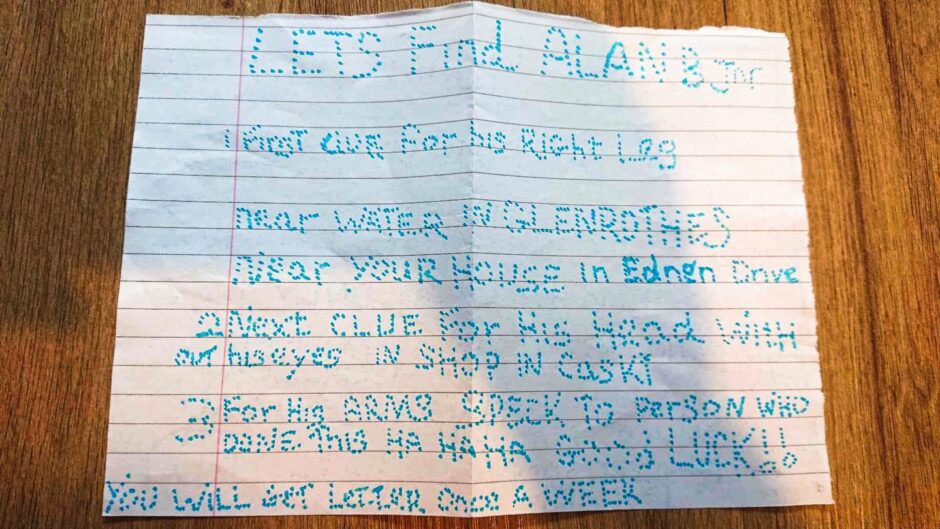 LETS Find ALAN B Jnr
1 First CLUE For his Right Leg
near WATER IN GLENROTHES
Near YOUR House in Ednen Drive
2 Next CLUE For His Head With
out his eyes IN SHOP IN CasKT
3 For His ARMS SPECK To PERSON WHO
DONE THis HA HA HA Good LUCK!!
You WILL Get Letter Once A WEEK